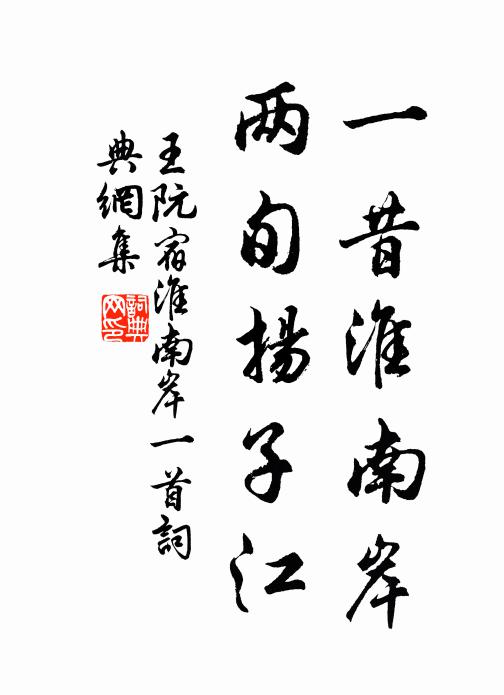 一昔淮南岸
两旬揚子江
王阮宿淮南岸一首詞
典網集
詞典网印